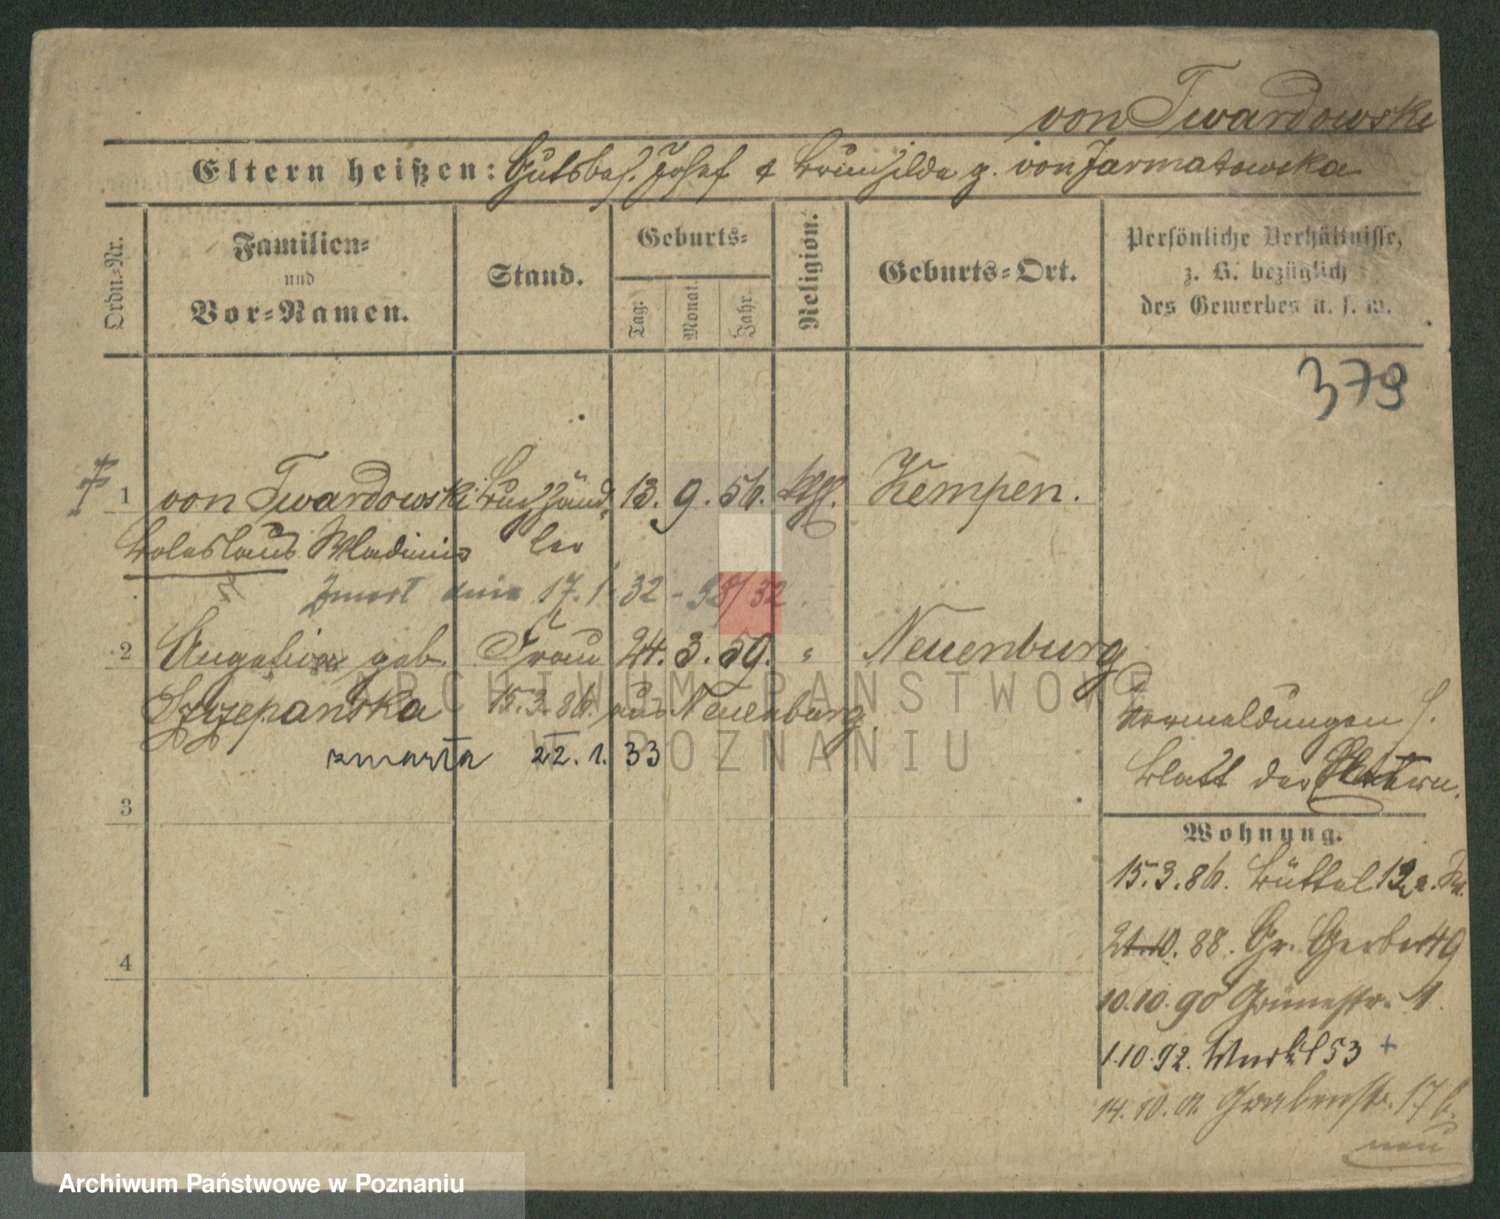 von Twardowski
Eltern heißen: Gutsbes. Josef & Brunhilde g. von Jarmatowska
Ordn.-Nr.
Familien-
und
Vor-Namen.
Stand.
Geburts-
Tag:
Monat.
Jahr.
Religion.
Geburts-Ort.
Persönliche Verhältnisse,
z. B. bezüglich
des Gewerbes u. s. w.
379
1 von Twardowski Buchhänd- 13. 9. 56. kth. Kempen.
Boleslaus Wladimir ler
Zmarł dnia 17. 1. 32 /32
2 geb. Frau 24. 3. 59. " Neuenburg
Szczepańska 15. 3. 86. aus Neuenburg
zmarła 22. 1. 33
Vermeldungen s.
Blatt der Eltern.
3
Wohnung.
15. 3. 86. Büttel 12
88. Gr. Gerber 49
4
10. 10. 90 Grünestr. 4.
1. 10. 92. 53 +
14. 10. Grabenstr. 17
neu
ARCHIWUM PAŃSTWOWE
W POZNANIU
Archiwum Państwowe w Poznaniu